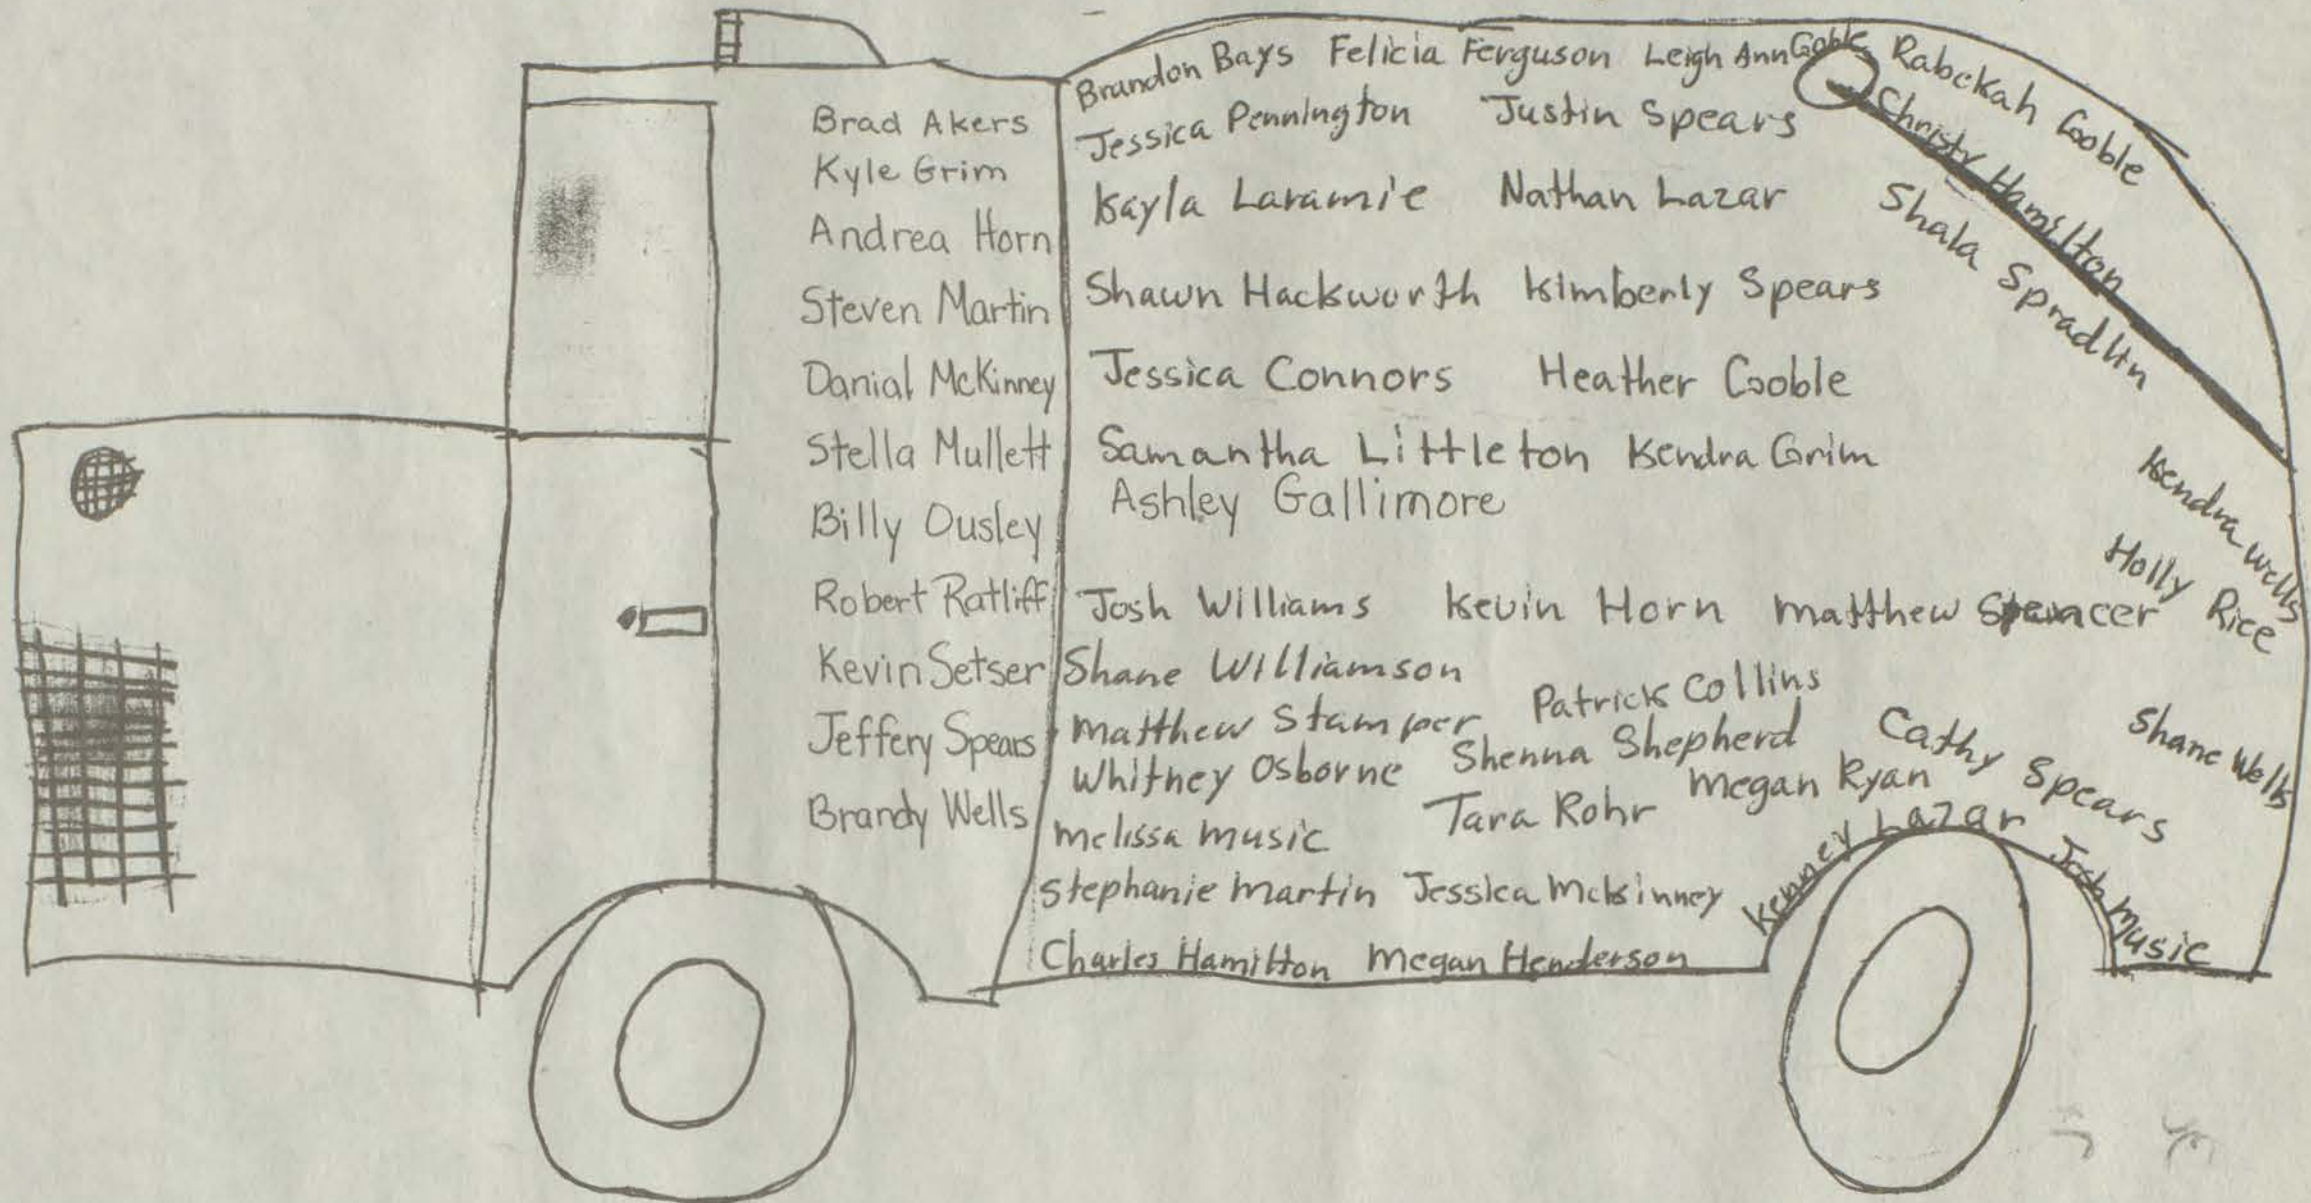 Brad Akers
Kyle Grim
Andrea Horn
Steven Martin
Danial McKinney
Stella Mullett
Billy Ousley
Robert Ratliff
Kevin Setser
Jeffery Spears
Brandy Wells
Brandon Bays Felicia Ferguson Leigh Ann Goble Rabekah Goble
Jessica Pennington Justin Spears Christy Hamilton
Kayla Laramie Nathan Lazar Shala Spradlin
Shawn Hackworth Kimberly Spears
Jessica Connors Heather Goble
Samantha Littleton Kendra Grim
Ashley Gallimore
Kendra Wells
Holly Rice
Josh Williams Kevin Horn Matthew Spencer
Shane Williamson
Matthew Stamper Patrick Collins
Whitney Osborne Shenna Shepherd Cathy Spears Shane Wells
Melissa Music Tara Rohr Megan Ryan
Stephanie Martin Jessica McKinney Kenney Lazar Josh Music
Charles Hamilton Megan Henderson